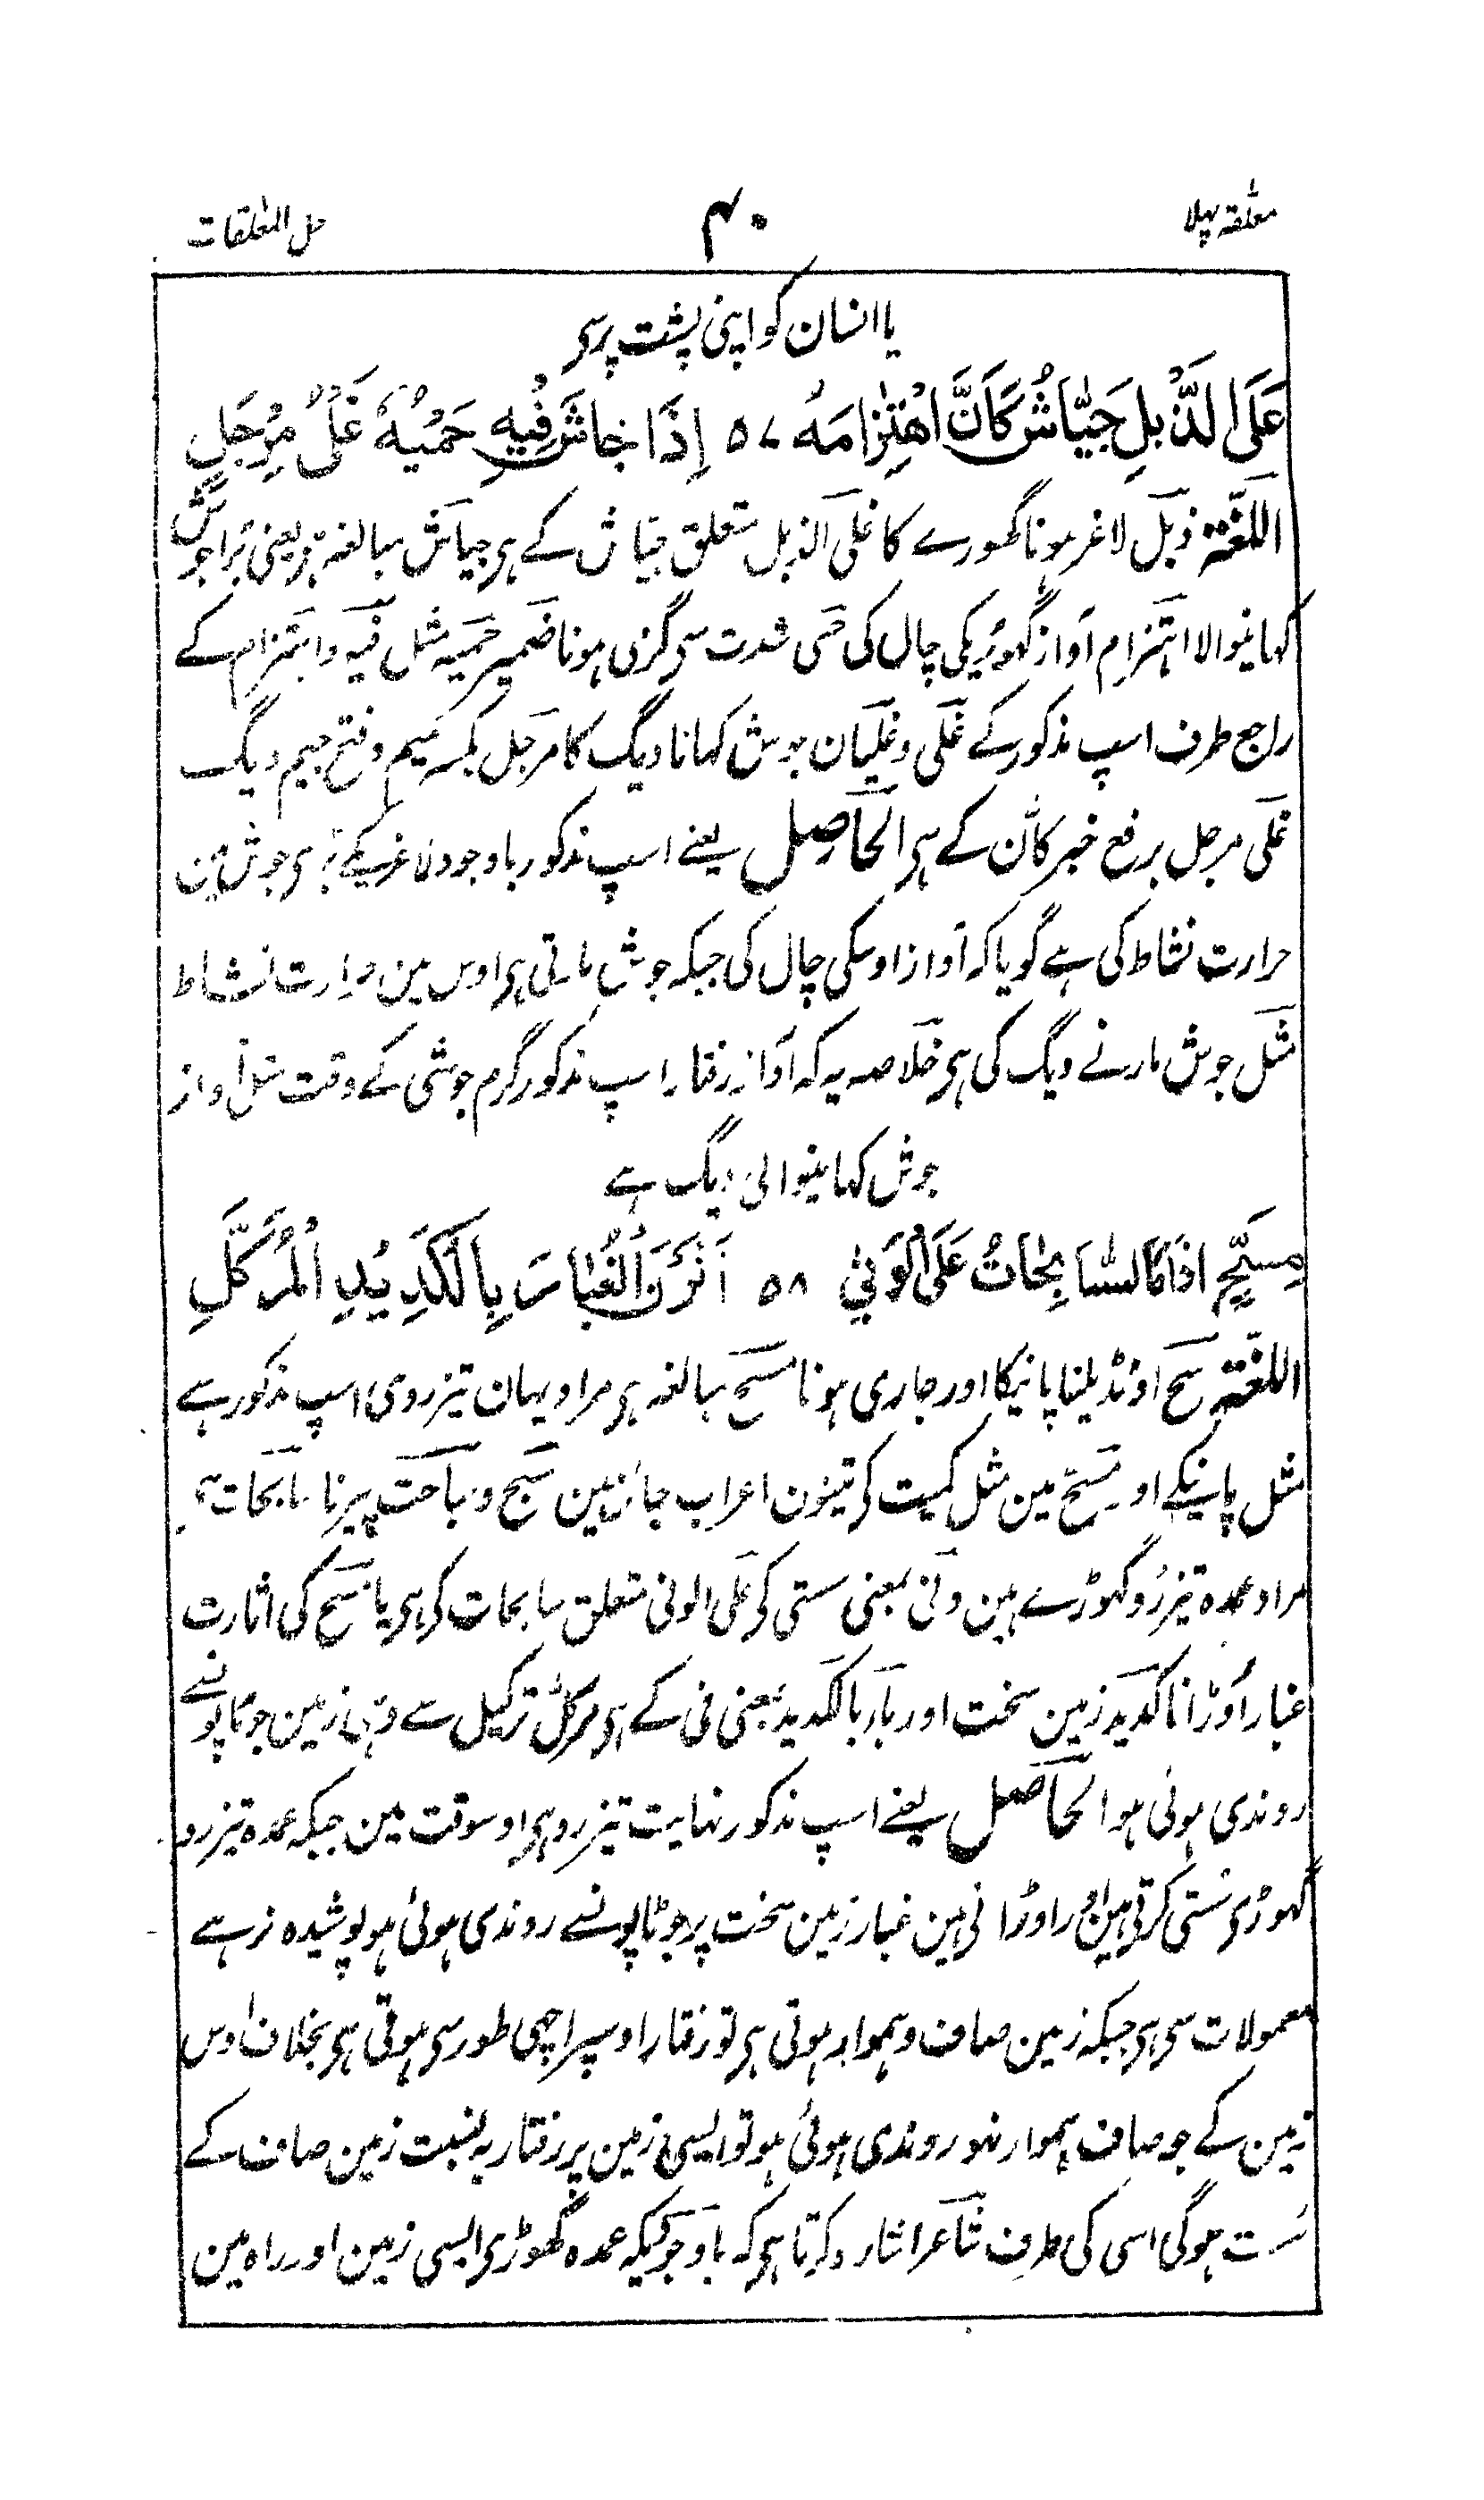 معلقہ پہلا
۴۰
حل المعلقات
یا انسان کو اپنی پشت پر سی
عَلَى الذَّبْلِ جَيَّاشٌ كَأَنَّ اهْتِزَامَهُ ۵۷ إِذَا جَاشَ فِيْهِ حَمْيُهُ غَلْيُ مِرْجَلِ
اللغۃ ذبل لاغر ہونا گھورے کا علی الذبل متعلق جیاش کے ہی جیاش مبالغہ ہی یعنی بڑا جوش
کہانیوالا اہتزام آواز گھوڑیکی چال کی حمی شدت سی گرمی ہونا ضمیر حمیہ مثل فیہ و اہتزام کے
راجع طرف اسپ مذکور کے غلی و غلیان جوش کہانا دیگ کا مرجل بکسر میم و فتح جیم دیگ
غلی مرجل برفع خبر کأن کے ہی الحاصل یعنے اسپ مذکور باوجود لاغریکے بڑی جوش مین
حرارت نشاط کی ہے گویا کہ آواز اوسکی چال کی جبکہ جوش مارتی ہی اوس مین حرارت نشاط
مثل جوش مارنے دیگ کی ہی خلاصہ یہ کہ آواز رفتار اسپ مذکور گرم جوشی کے وقت مثل آواز
جوش کہانیوالی دیگ ہے
مِسَحٍّ اذَا مَا السَّابِحَاتُ عَلَى الْوَنٰى ۵۸ أَثَرْنَ الْغُبَارَ بِالْكَدِيْدِ الْمُرَكَّلِ
اللغۃ سح اونڈیلنا پانیکا اور جاری ہونا مسح مبالغہ ہی مراد یہان تیز روی اسپ مذکور ہے
مثل پانیکے اور مسح مین مثل کمیت کی تینون اعراب جائز ہین سبح و سباحت پیرنا سابحات سی
مراد عمدہ تیز رو گھوڑے ہین ونی بمعنی سستی کی علی الونی متعلق سابحات کی ہی یا مسح کی اثارت
غبار اوڑانا کدید زمین سخت اور باء بالکدید بمعنی فی کے ہی مرکل ترکیل سے وہی زمین جو ٹاپونسے
روندی ہوئی ہو الحاصل یعنے اسپ مذکور نہایت تیز رو ہی اوسوقت مین جبکہ عمدہ تیز رو
گھوڑی سستی کرتی ہین اور اوڑاتی ہین غبار زمین سخت پر جو ٹاپونسے روندی ہوئی ہو پوشیدہ نرہے
معمولات سی ہی جبکہ زمین صاف و ہموار ہوتی ہی تو رفتار اوسپر اچھی طور سی ہوتی ہی بخلاف اوس
زمین کے جو صاف ہموار نہو روندی ہوئی ہو تو ایسی زمین پر رفتار بہ نسبت زمین صاف کے
سست ہوگی اسی کی طرف شاعر اشارہ کرتا ہی کہ باوجودیکہ عمدہ گھوڑی ایسی زمین اور راہ مین